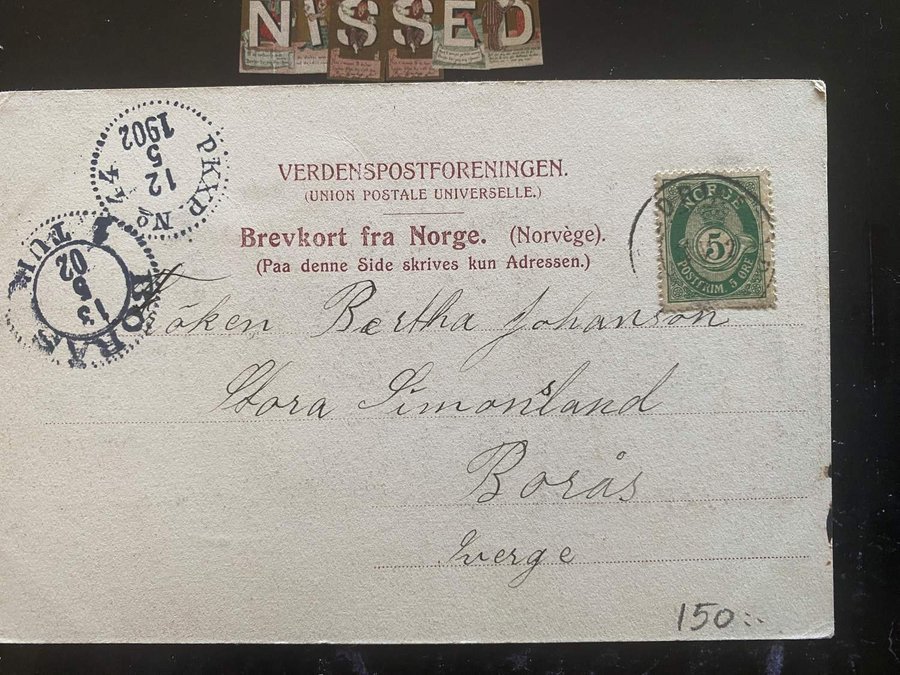 NISSED
PKXP No 44
12
5
1902
BORÅS
13
5
02
VERDENSPOSTFORENINGEN.
(UNION POSTALE UNIVERSELLE.)
Brevkort fra Norge. (Norvège).
(Paa denne Side skrives kun Adressen.)
NORGE
5
POSTFRIM. 5 ØRE
Fröken Bertha Johanson
Stora Simonsland
Borås
Sverge
150:-